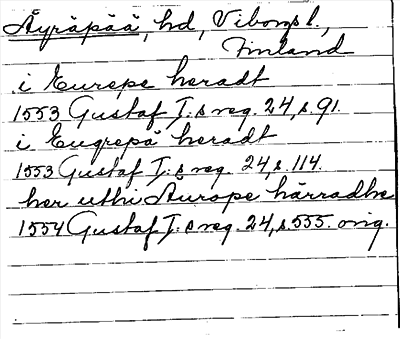 Äyräpää, hd, Viborgs l.,
Finland
i Eurepe heradt
1553 Gustaf I:s reg. 24, s. 91.
i Eugrepä heradt
1553 Gustaf I:s reg. 24, s. 114.
her uthi Aurope härradhe
1554 Gustaf I:s reg. 24, s. 555. orig.